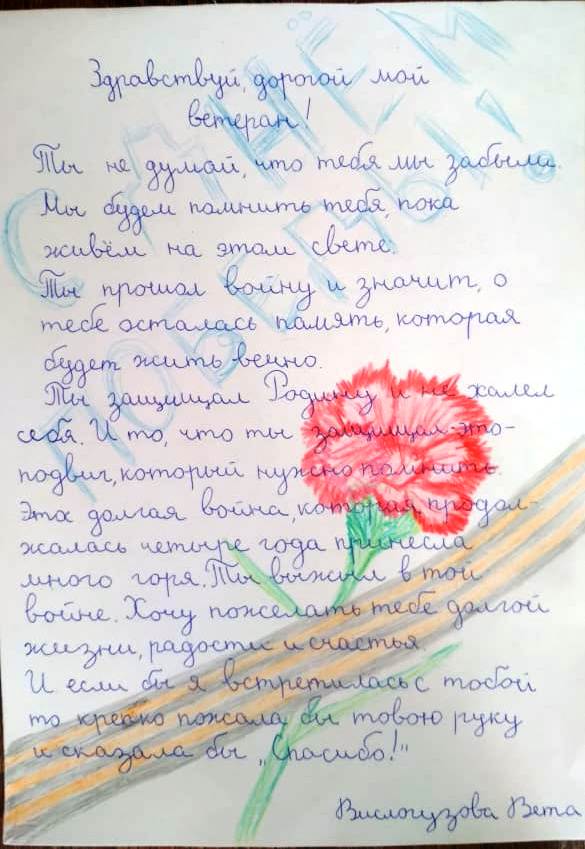 С ДНЁМ
ПОБЕДЫ!
Здравствуй, дорогой мой
ветеран!
Ты не думай, что тебя мы забыли.
Мы будем помнить тебя, пока
живём на этом свете.
Ты прошол войну и значит, о
тебе осталась память, которая
будет жить вечно.
Ты защищал Родину и не жалел
себя. И то, что ты защищал-это-
подвиг, который нужно помнить.
Эта долгая война, которая продол-
жалась четыре года принесла
много горя. Ты выжил в той
войне. Хочу пожелать тебе долгой
жизни, радости и счастья.
И если бы я встретилась с тобой
то крепко пожала бы товою руку
и сказала бы „Спасибо!"
Вислогузова Вета